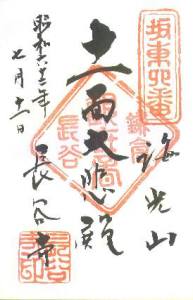 坂東四番
海光山
十一面大悲殿
鎌倉
長谷
長谷寺
昭和六十三年
七月十一日